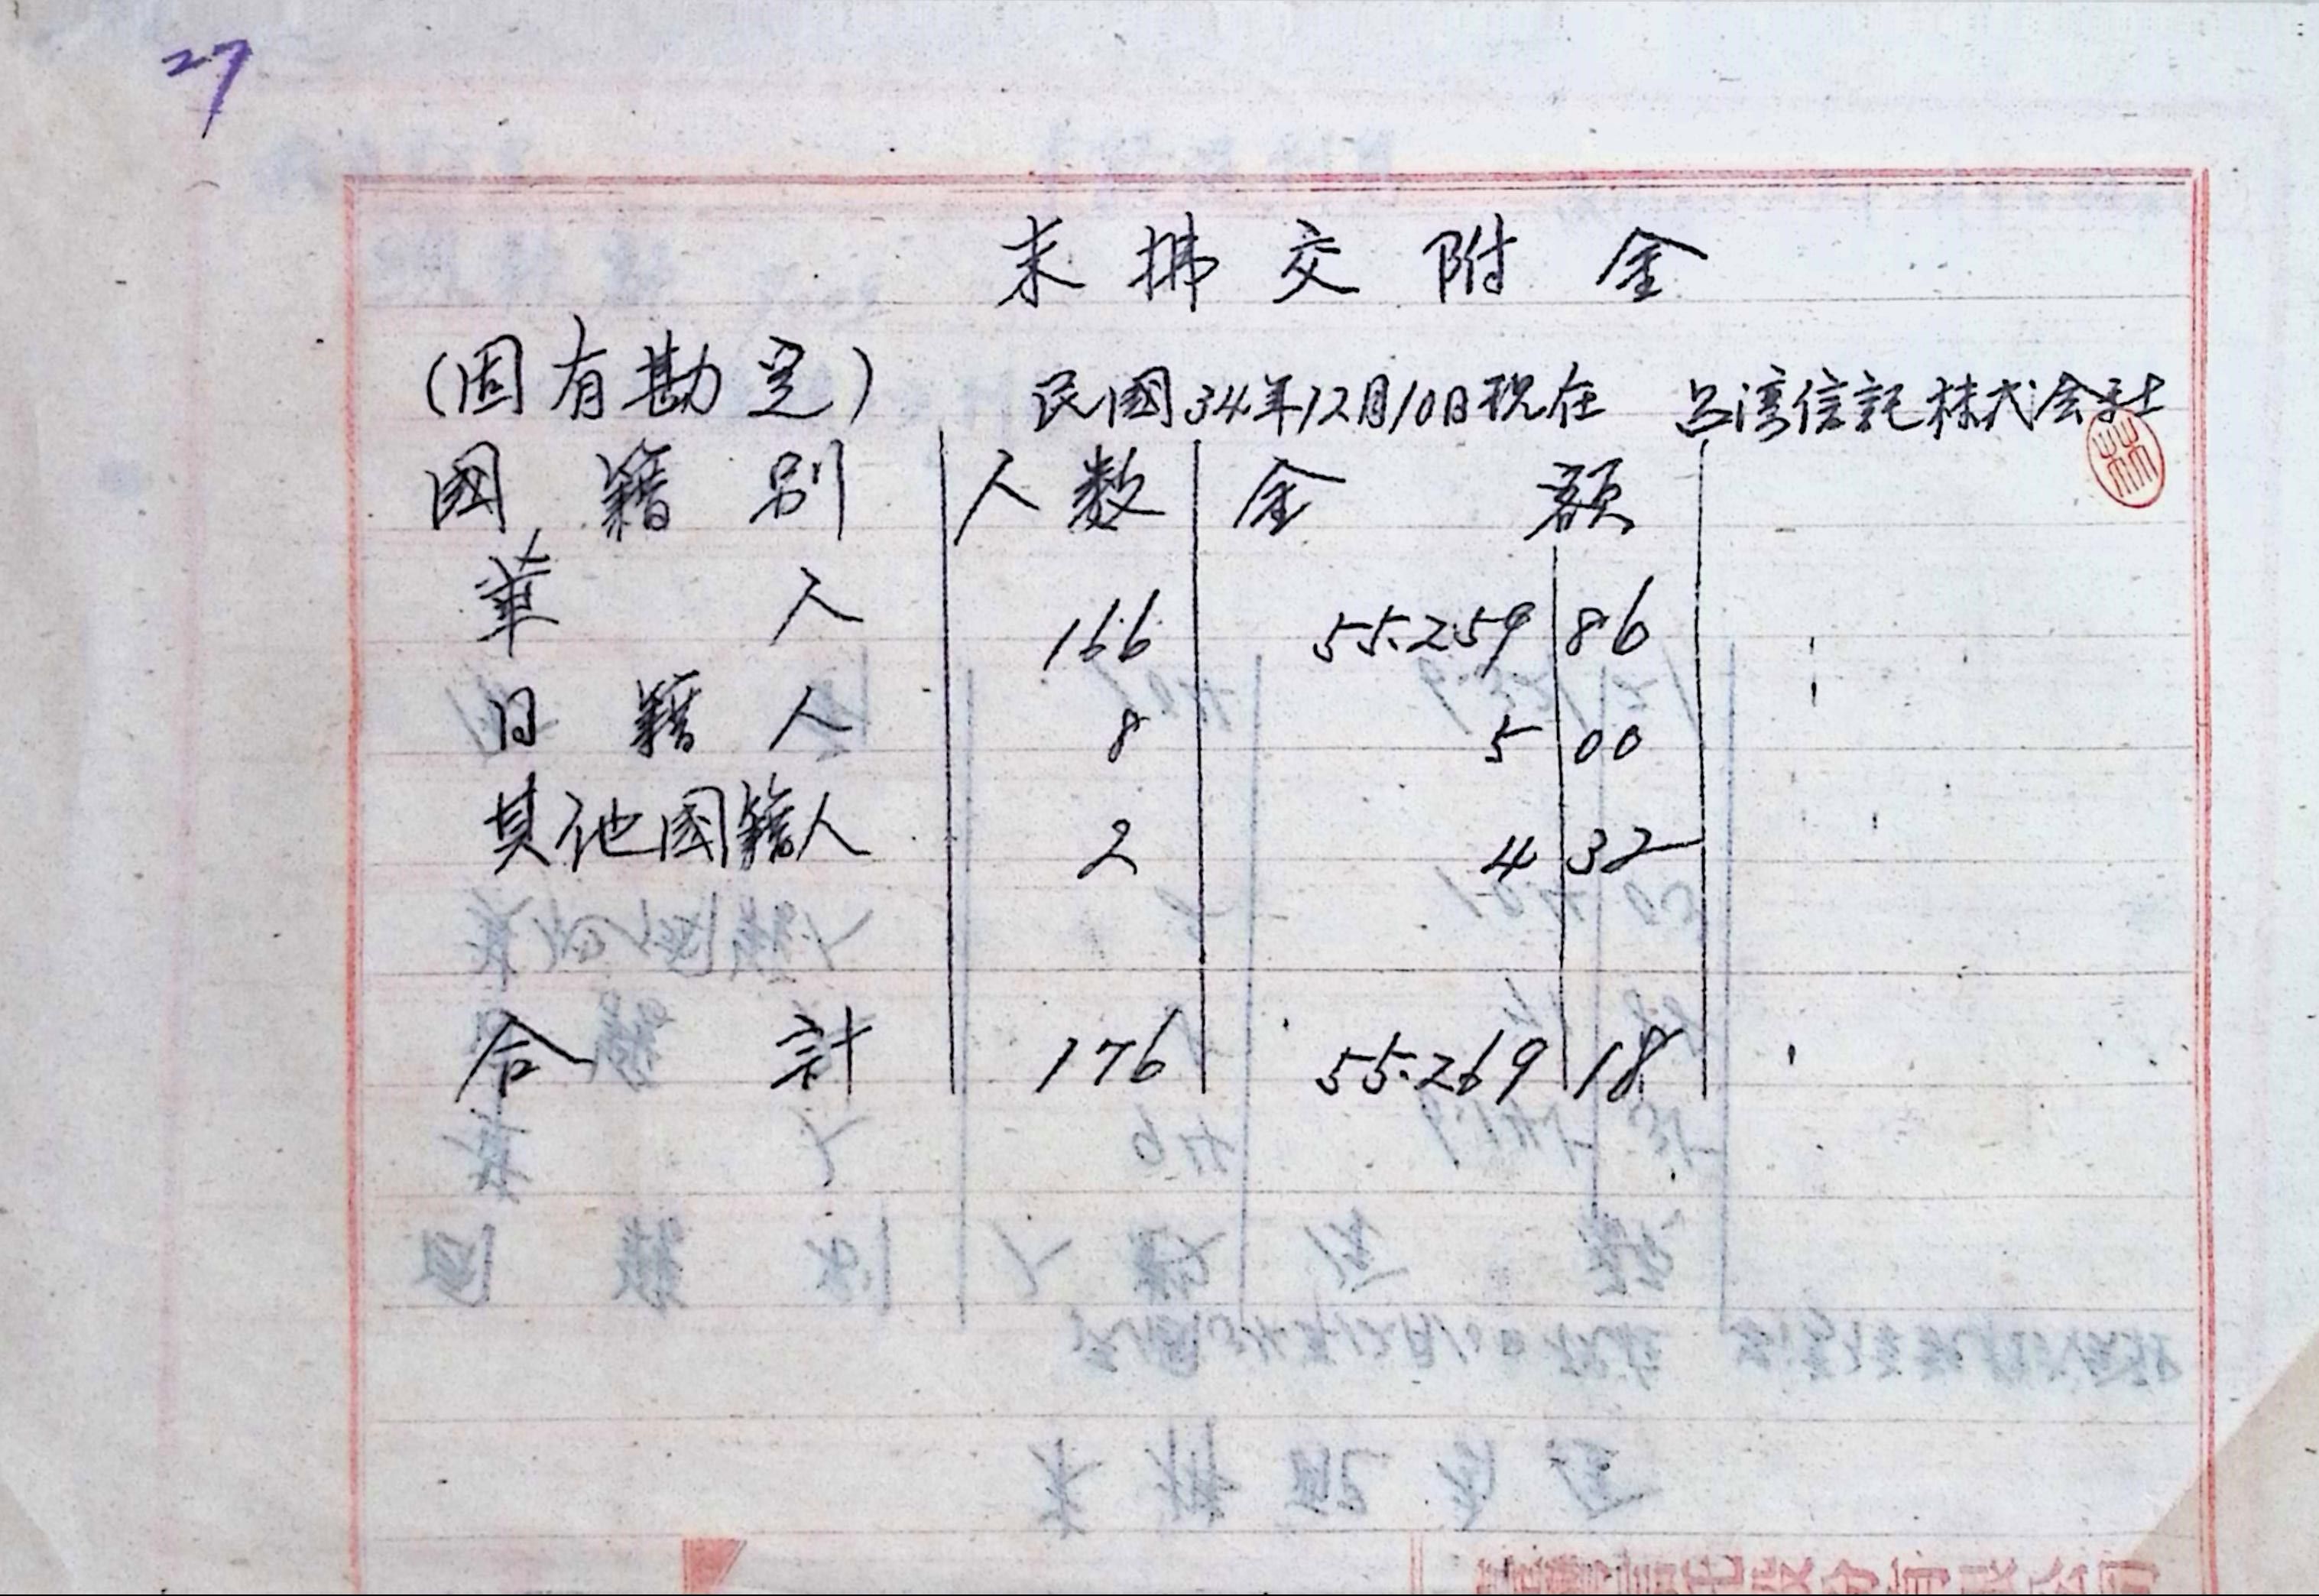 27
未拂交附金
(固有勘定) 民國34年12月10日現在 台湾信託株式会社
國籍別 人数 金額
華人 166 55.259 86
日籍人 8 5 00
其他國籍人 2 4 32
合計 176 55.269 18